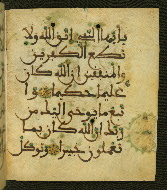 يأيها النبي اتق الله ولا
تطع الكفرين
والمنفقين إن الله كان
عليما حكيما وا
تبع ما يوحى إليك من
ربك إن الله كان بما
تعملون خبيرا وتوكل